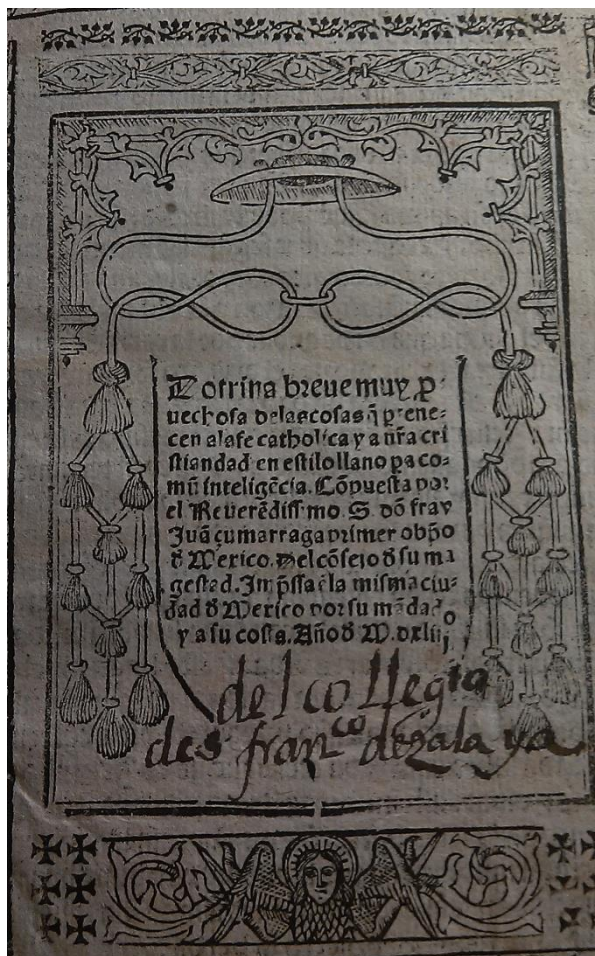 Dotrina breue muy ꝓ-
uechosa delas cosas q̃ ꝑtene-
cen ala fe catholica y a nr̃a cri
stiandad en estilo llano ꝑa co-
mũ inteligẽcia. Cõpuesta por
el Reuerẽdissimo. S. dõ fray
Juã çumarraga primer obp̃o
d̓ Mexico. Del cõsejo d̓ su ma
gestad. Imp̃ssa ẽ la misma ciu-
dad d̓ Mexico por su mãdado
y a su costa. Año d̓ M.dxliij
del collegio
de s franco de zelaya